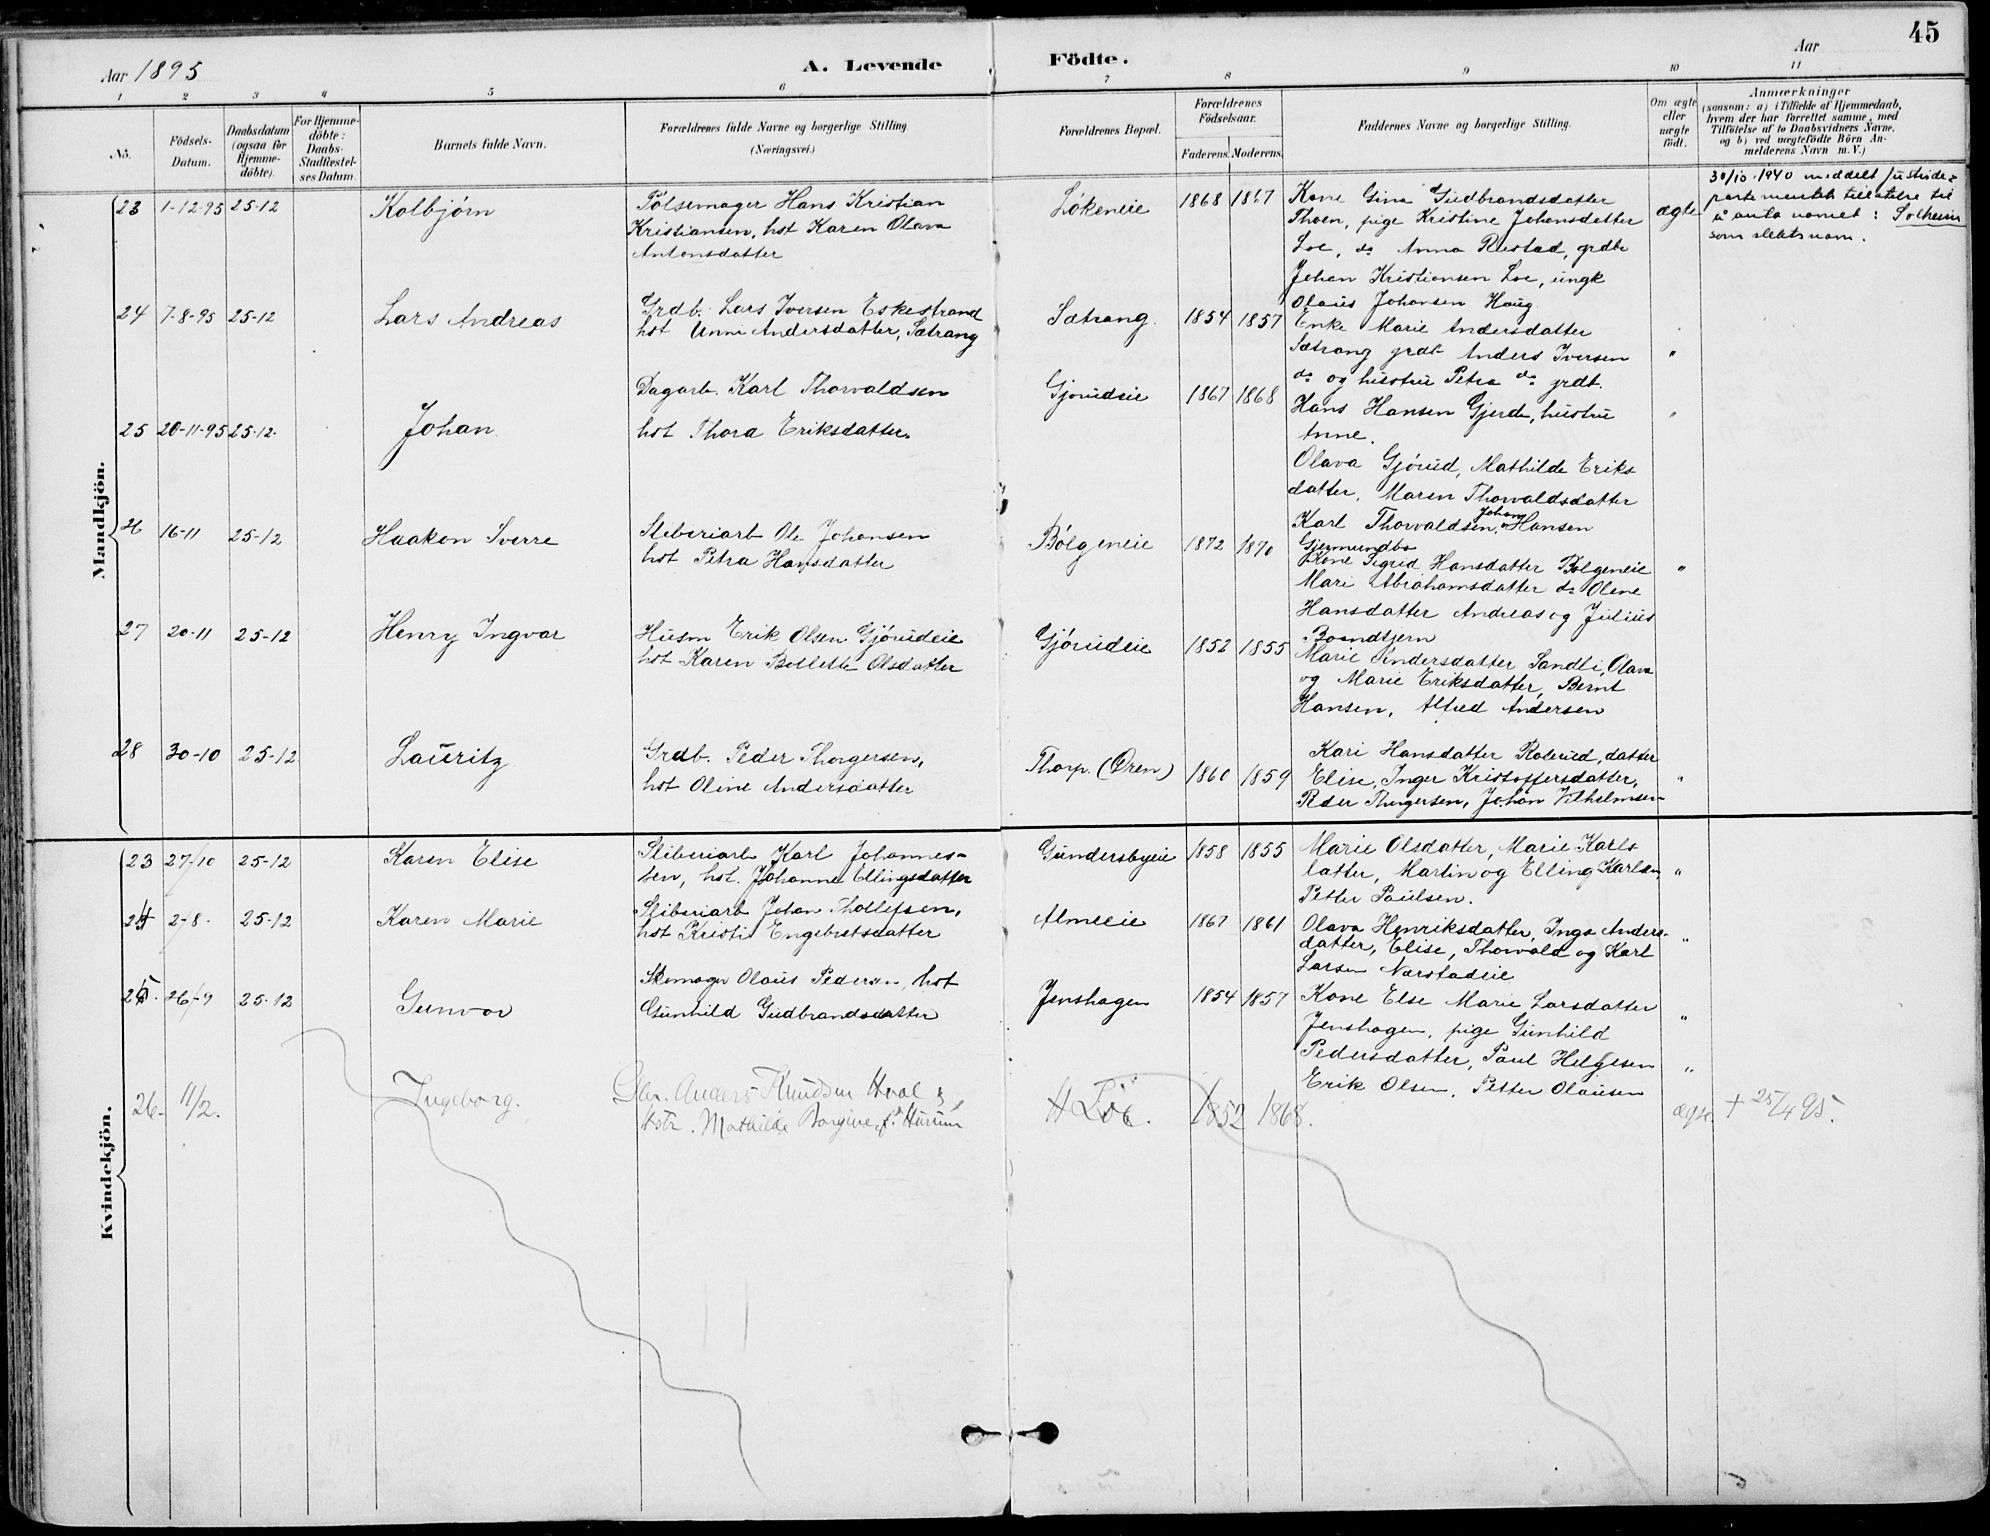 45
Aar 1895
A. Levende Födte.
Aar
1 2 3 4 5 6 7 8 9 10 11
No.
Födsels-Datum.
Daabsdatum (ogsaa for Hjemme-döbte).
For Hjemme-döbte: Daabs-Stadfæstel-ses Datum.
Barnets fulde Navn.
Forældrenes fulde Navne og borgerlige Stilling.
(Næringsvei.)
Forældrenes Bopæl.
Forældrenes Födselsaar.
Faderens. Moderens.
Faddernes Navne og borgerlige Stilling.
Om ægte eller uægte födt.
Anmærkninger
(saasom: a) i Tilfælde af Hjemmedaab, hvem der har forrettet samme, med Tilföielse af to Daabsvidners Navne, og b) ved uægtefödte Börn An-melderens Navn m. V.)
Mandkjön.
23 1-12-95 25-12 Kolbjörn
Pölsemager Hans Kristian
Kristiansen, hst Karen Olava
Antonsdatter
Lökeneie 1868 1867
Kone Gina Gudbrandsdatter
Thoen, pige Kristine Johansdatter
Loe, do Anna Rustad, grdbr
Johan Kristiansen Loe, ungk
Olaus Johansen Haug.
ægte
30/10-1940 meddelt justisde=
partementet tillatelse til
å anta navnet: Solheim
som slektsnavn.
24 7-8-95 25-12 Lars Andreas
Grdb. Lars Iversen Eskestrand
hst Unni Andersdatter, Sætrang
Sætrang. 1854 1857
Enke Marie Andersdatter
Sætrang grdb Anders Iversen
do og hustru Petra do grdb.
Hans Hansen Gjerde, hustru
Anne.
"
25 20-11-95 25-12 Johan
Dagarb. Karl Thorvaldsen
hst Thora Eriksdatter.
Gjörudeie 1867 1868
Olava Gjörud, Mathilde Eriks
datter, Maren Thorvaldsdatter
Karl Thorvaldsen, Johan Hansen
Gjermundbo
"
26 16-11 25-12 Haakon Sverre
Sliberiarb Ole Johansen
hst Petra Hansdatter
Bölgeneie 1872 1870
Kone Sigrid Hansdatter Bölgeneie
Mari Abrahamsdatter do Oline
Hansdatter Andreas og Julius
Brandtjern
"
27 20-11 25-12 Henry Ingvar
Husm Erik Olsen Gjörudeie
hst Karen Bollette Olsdatter
Gjörudeie 1852 1855
Marie Andersdatter Sandli, Olava
og Marie Eriksdatter, Bernt
Hansen, Alfred Andersen
28 30-10 25-12 Lauritz
Grdb. Peder Thorgersen,
hst Oline Andersdatter
Thorp. (Ören) 1860 1859
Kari Hansdatter Rolerud, datter
Elise, Inger Kristoffersdatter,
Peder Thorgersen, Johan Vilhelmsen
"
Kvindekjön.
23 27-10 25-12 Karen Elise
Sliberiarb Karl Johannes-
sen, hst. Johanne Ellingsdatter
Gundersbyeie 1858 1855
Marie Olsdatter, Marie Karls
datter, Martin og Elling Karlsen,
Petter Paulsen.
"
24 2-8- 25-12 Karen Marie
Sliberiarb Johan Thollefsen,
hst Kristi Engebretsdatter
Almeeie 1867 1861
Olava Henriksdatter, Inga Anders-
datter, Elise, Thorvald og Karl
Larsen Narstadeie
"
25. 26-9 25-12 Gunvor
Skomager Olaus Pedersen, hst
Gunhild Gudbrandsdatter
Jenshagen 1854 1857
Kone Else Marie Larsdatter
Jenshagen, pige Gunhild
Pedersdatter, Paul Helgesen
Erik Olsen, Petter Olausen
"
"
26. 11/2. Ingeborg.
Anders Knudsen Hval &
Hstr. Mathilde Borgine f. Hurum
Loe. 1852 1868.
ægte. + 25/4 95.